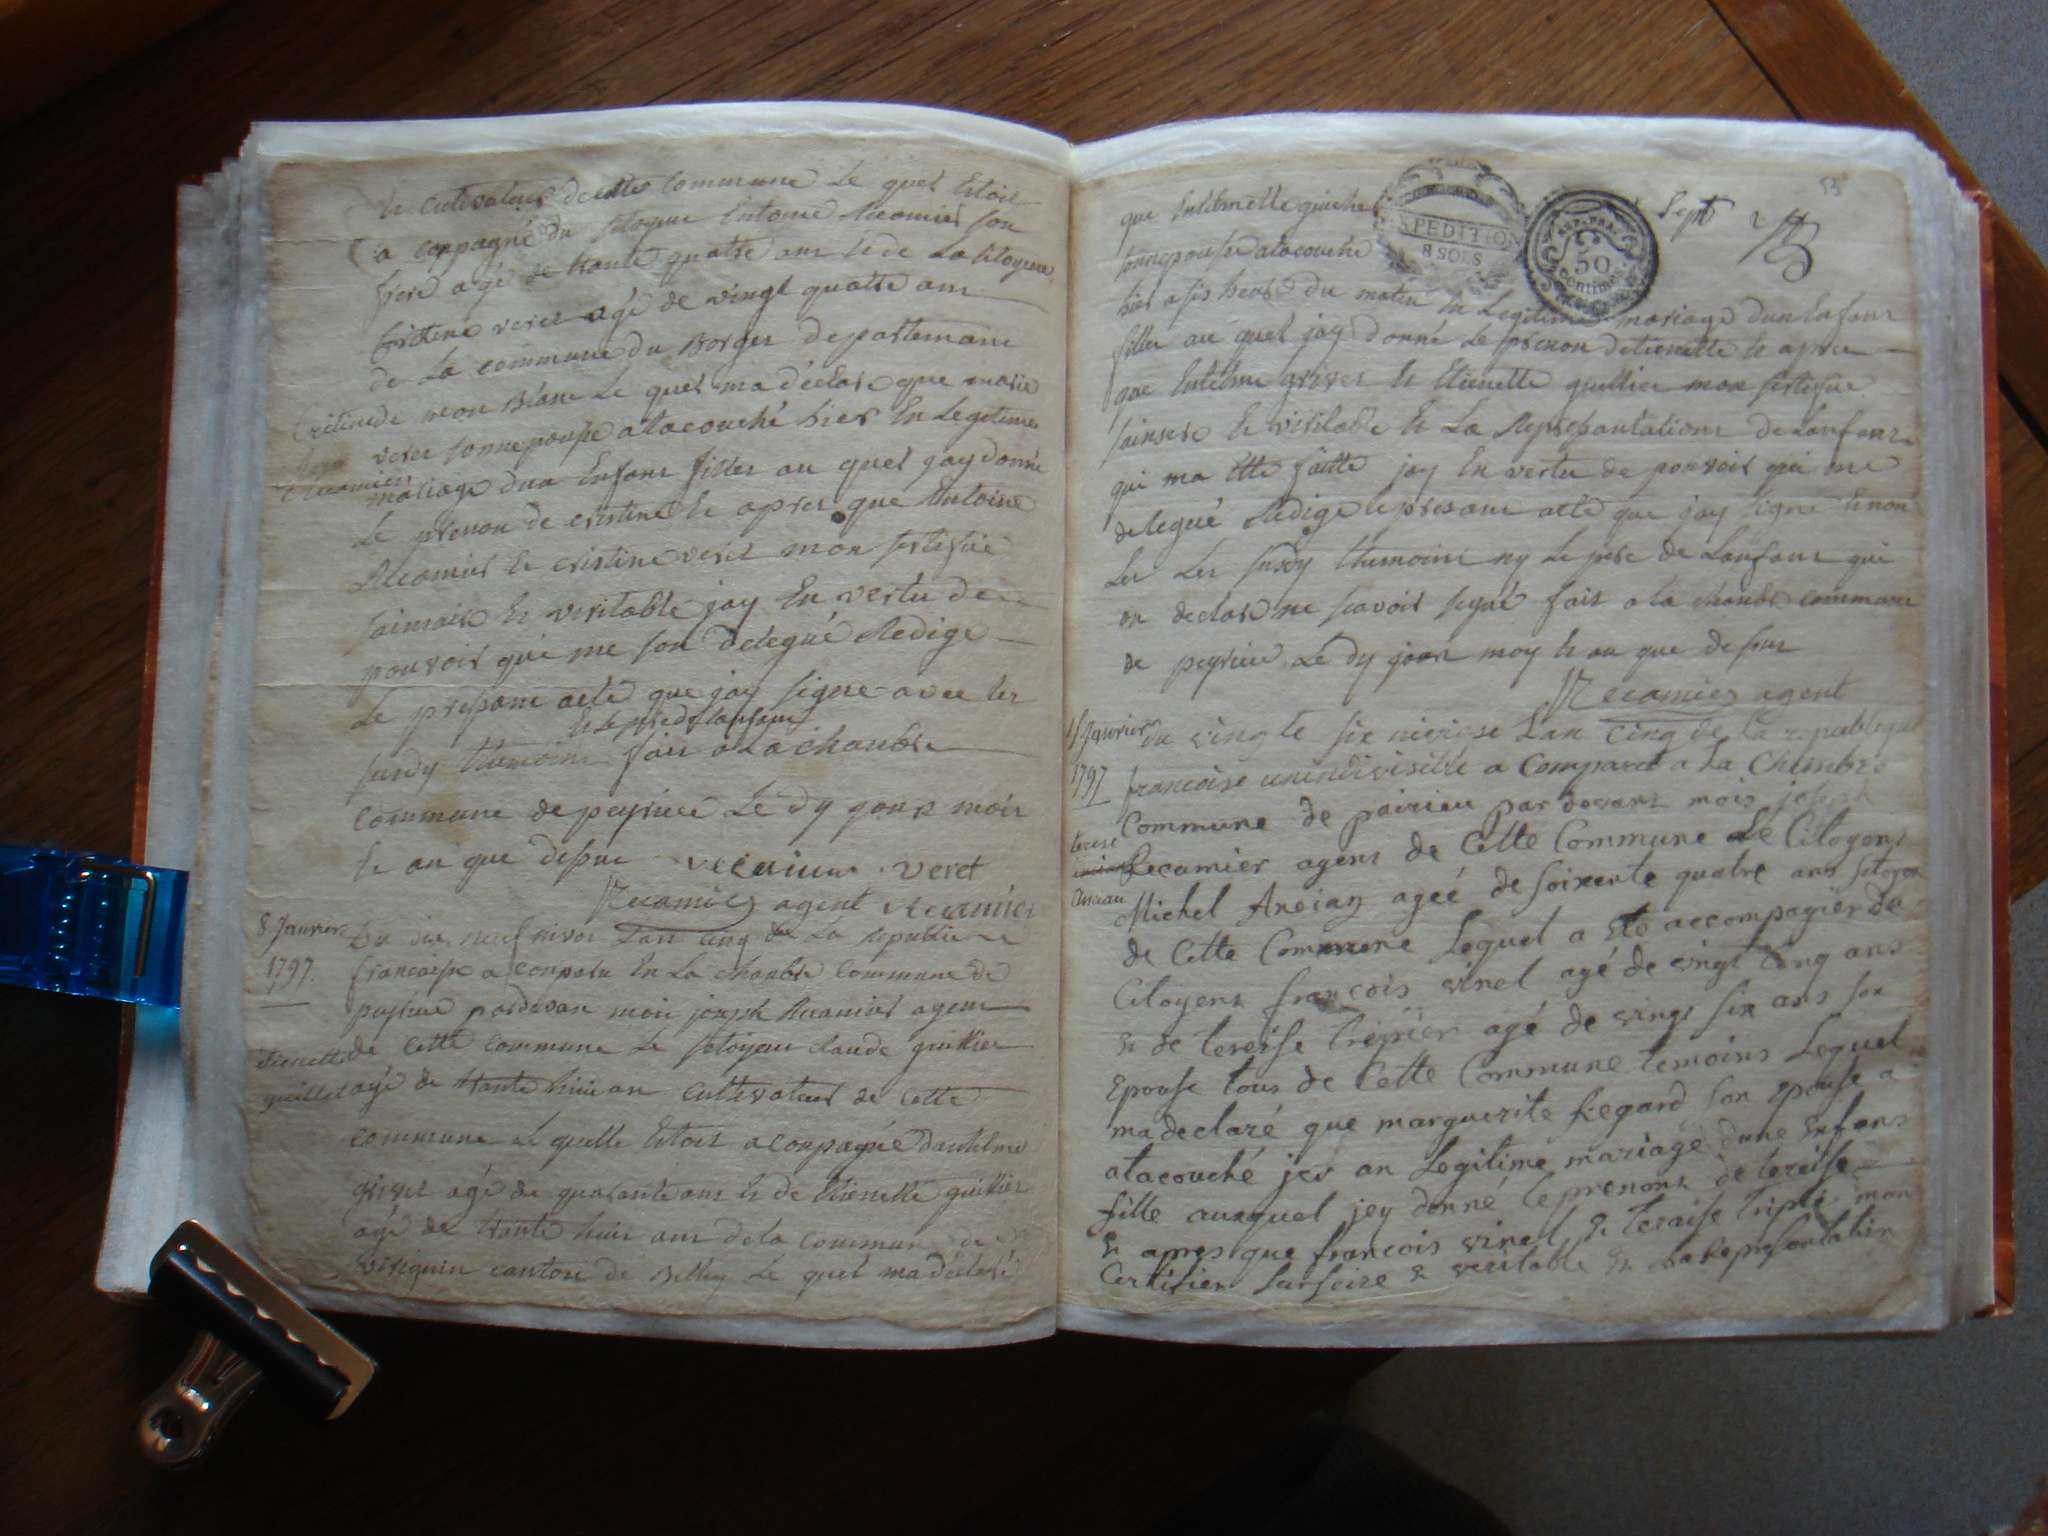 et cultivateur de cette commune Le quel Estoit
a conpagné du sitoyen Entoine Recamier son
frere agé de trante quatre ans et de La sitoyene
Cristine veret agé de vingt quatre ans
de La commune du Borget departemant
du mon Blanc Le quel ma déclaré que marie
veret sonn epouse atacouché hier En Legetime
mariage dun Enfant filles au quel jay donné
Le prenon de cristine Et apres que Entoine
Recamier Et cristine veret mon sertifié
sainsaire Et veritable jay En vertu de
pouvoir qui me son delegué Redigé
Le presant acte que jay signe avec les
et le pere de lanfant
susdy themoins fait a La chanbre
commune de peyrieu Le dy jour mois
Et an que desus veret
Recamier agent Recamier
Cristine
Recamier
8 Janvier
1797.
Du dix neuf nivos Lan cinq de La republique
francaise a conparu En La chanbre commune de
peyrieu pardevan moi joseph Recamier agent
de cette commune Le sitoyen claude guillier
agé de trante huit an cultivateur de cette
commune Le quelle Estoit aconpagnée dantelme
griset agé de quarante ans Et de Etienette guillier
agé de trante huit ans de la commune de
virignin canton de Belley Le quel ma declaré
Etienette
guillet
53
EXPEDITION
8 SOLS
50
Centimes
Sept
que
sonn epouse atacouché
hier a sis heure du matin En Legitime mariage dun Enfant
filles au quel jay donné Le prenon detienette Et apres
que Entelme griset Et Etienette guillier mon sertifié
sainsere Et veritable Et La Represantations de Lanfant
qui ma Ette faitte jay En vertu de pouvoir qui me
delegué Redige le presant acte que jay signe Et non
Les Les susdy themoins ny Le pere de Lanfant qui
on declaré ne scavoir signé fait a la chanbre commune
de peyrieu Le dy jour moy Et an que desus
Recamier agent
15 Janvier
1797
du vingte six nivose Lan cinq de La republique
francoise unindivisible a Comparet a La Chambre
Commune de pairieu par devant mois joseph
Recamier agent de Cette Commune Le Citoyens
Michel Ancian ageé de soixente quatre ans
de Cette Commune Lequel a ete accompagner du
Citoyens francois vinel agé de vingt Cinq ans
& de tereise trepier agé de vingt six ans son
Epouse tous de Cette Commune temoins Lequel
ma declaré que marguerite Regard son epouse a
atacouché jer an Legitime mariage dune Enfans
fille auxquel jey donné Le prenons de tereise
& apres que francois vinel & teraise tripié mon
Certifier sarsaire & veritable & La Represontation
terese
Ancian